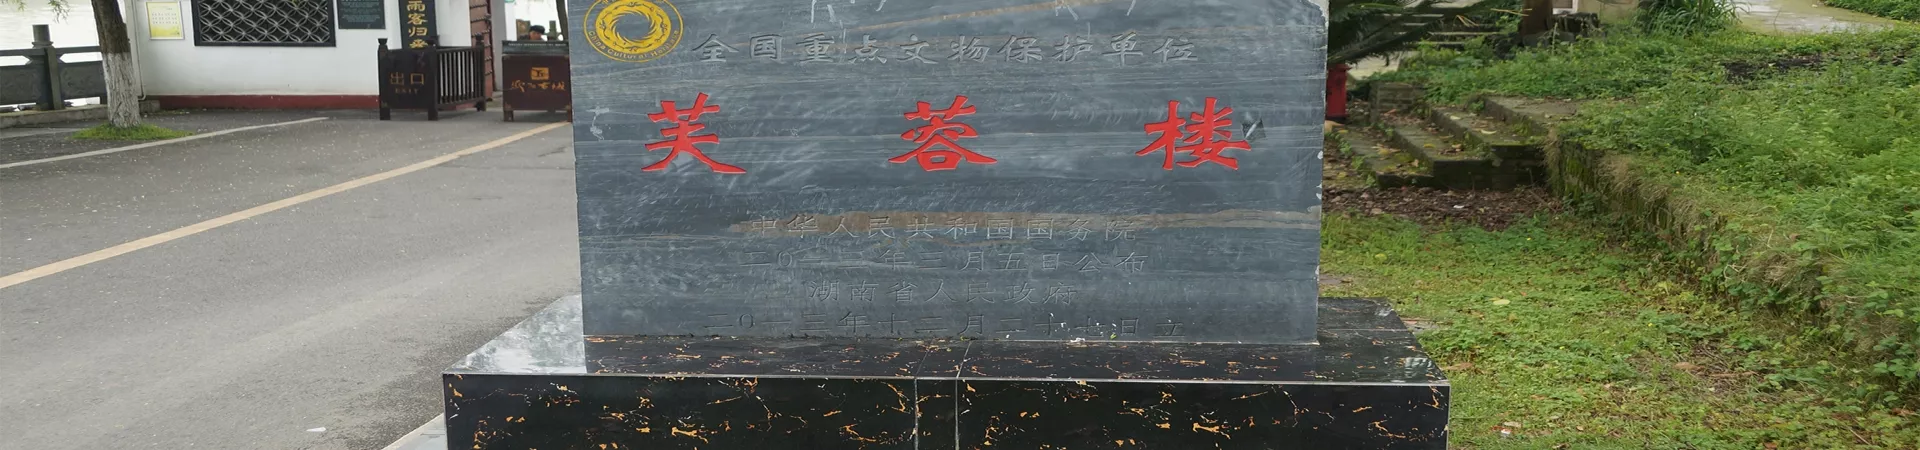 全国重点文物保护单位
芙蓉楼
中华人民共和国国务院
二〇一三年三月五日公布
湖南省人民政府
二〇一三年十二月二十七日立
雨客归
出口
EXIT
China Cultural Heritage